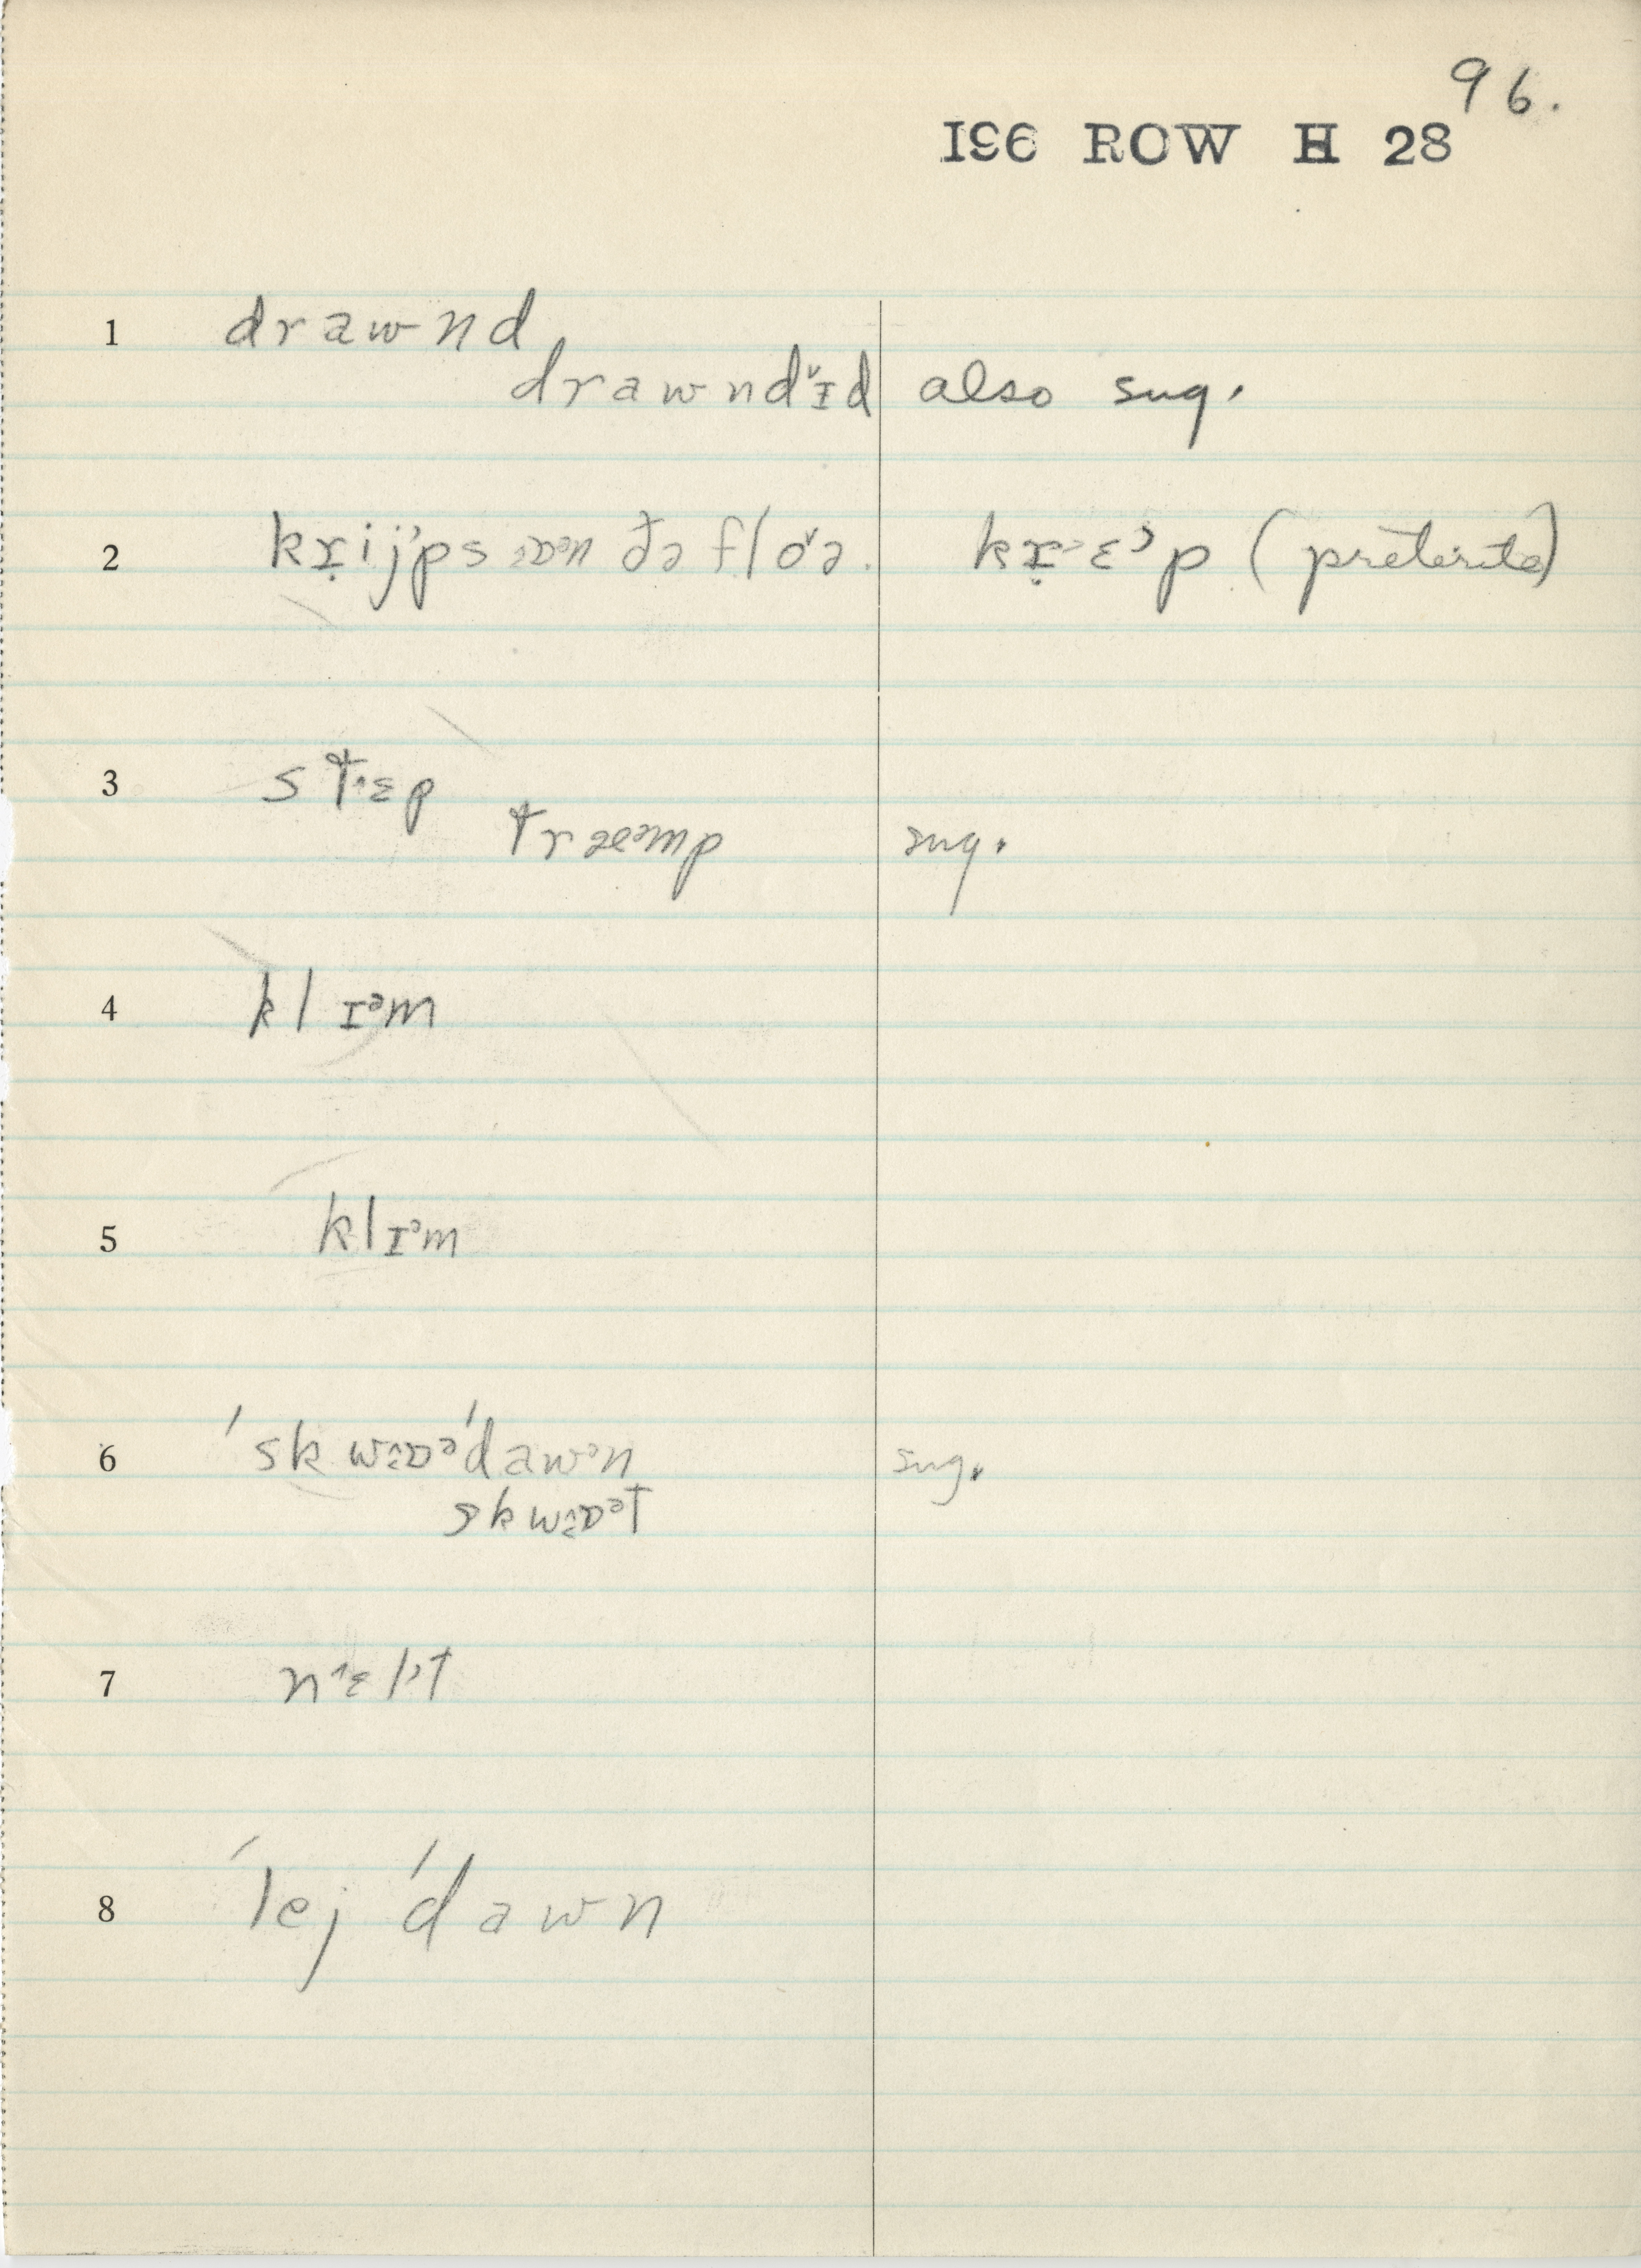 96.
196 ROW H 28
1 drawnd
drawndᵛɪd also sug.
2 kɾ̣ijᵊps ɒᵊn ðə flo˅ə. kɾ̣˔ɛᵊp (preterite)
3 st˄ɛp
træᵊmp sug.
4 klɪᵊm
5 klɪᵊm
6 ˈskwɒᵊˈdawᵊn sug.
skwɒᵊt
7 n˄ɛlᵊt
8 ˈlejˈdawn